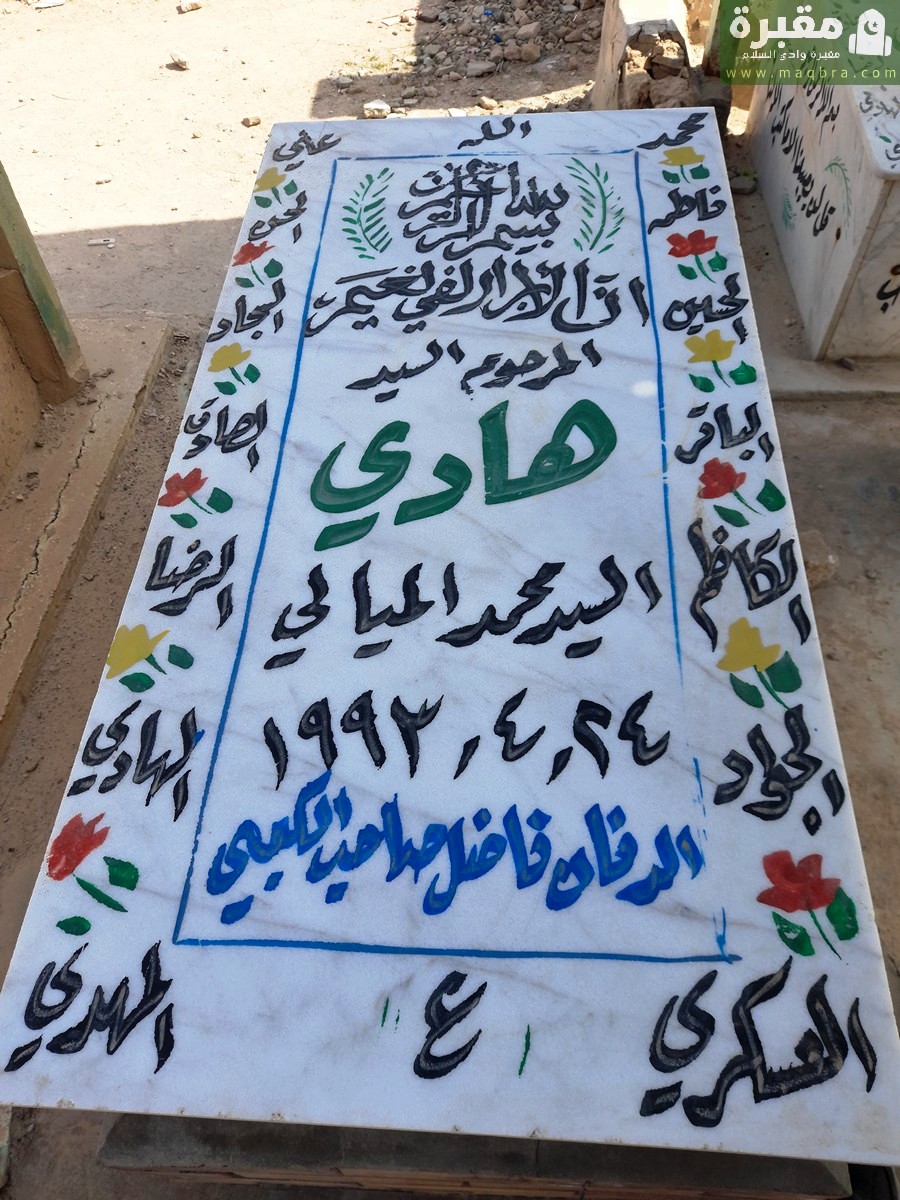 مقبرة
مقبرة وادي السلام
www.maqbra.com
محمد الله علي
فاطمة الحسن
الحسين السجاد
الباقر الصادق
الكاظم الرضا
الجواد الهادي
العسكري ع المهدي
بسم الله الرحمن الرحيم
ان الابرار لفي نعيم
المرحوم السيد
هادي
السيد محمد الميالي
٢٤ , ٤ , ١٩٩٣
الدفان فاضل صاحب الكبيبي